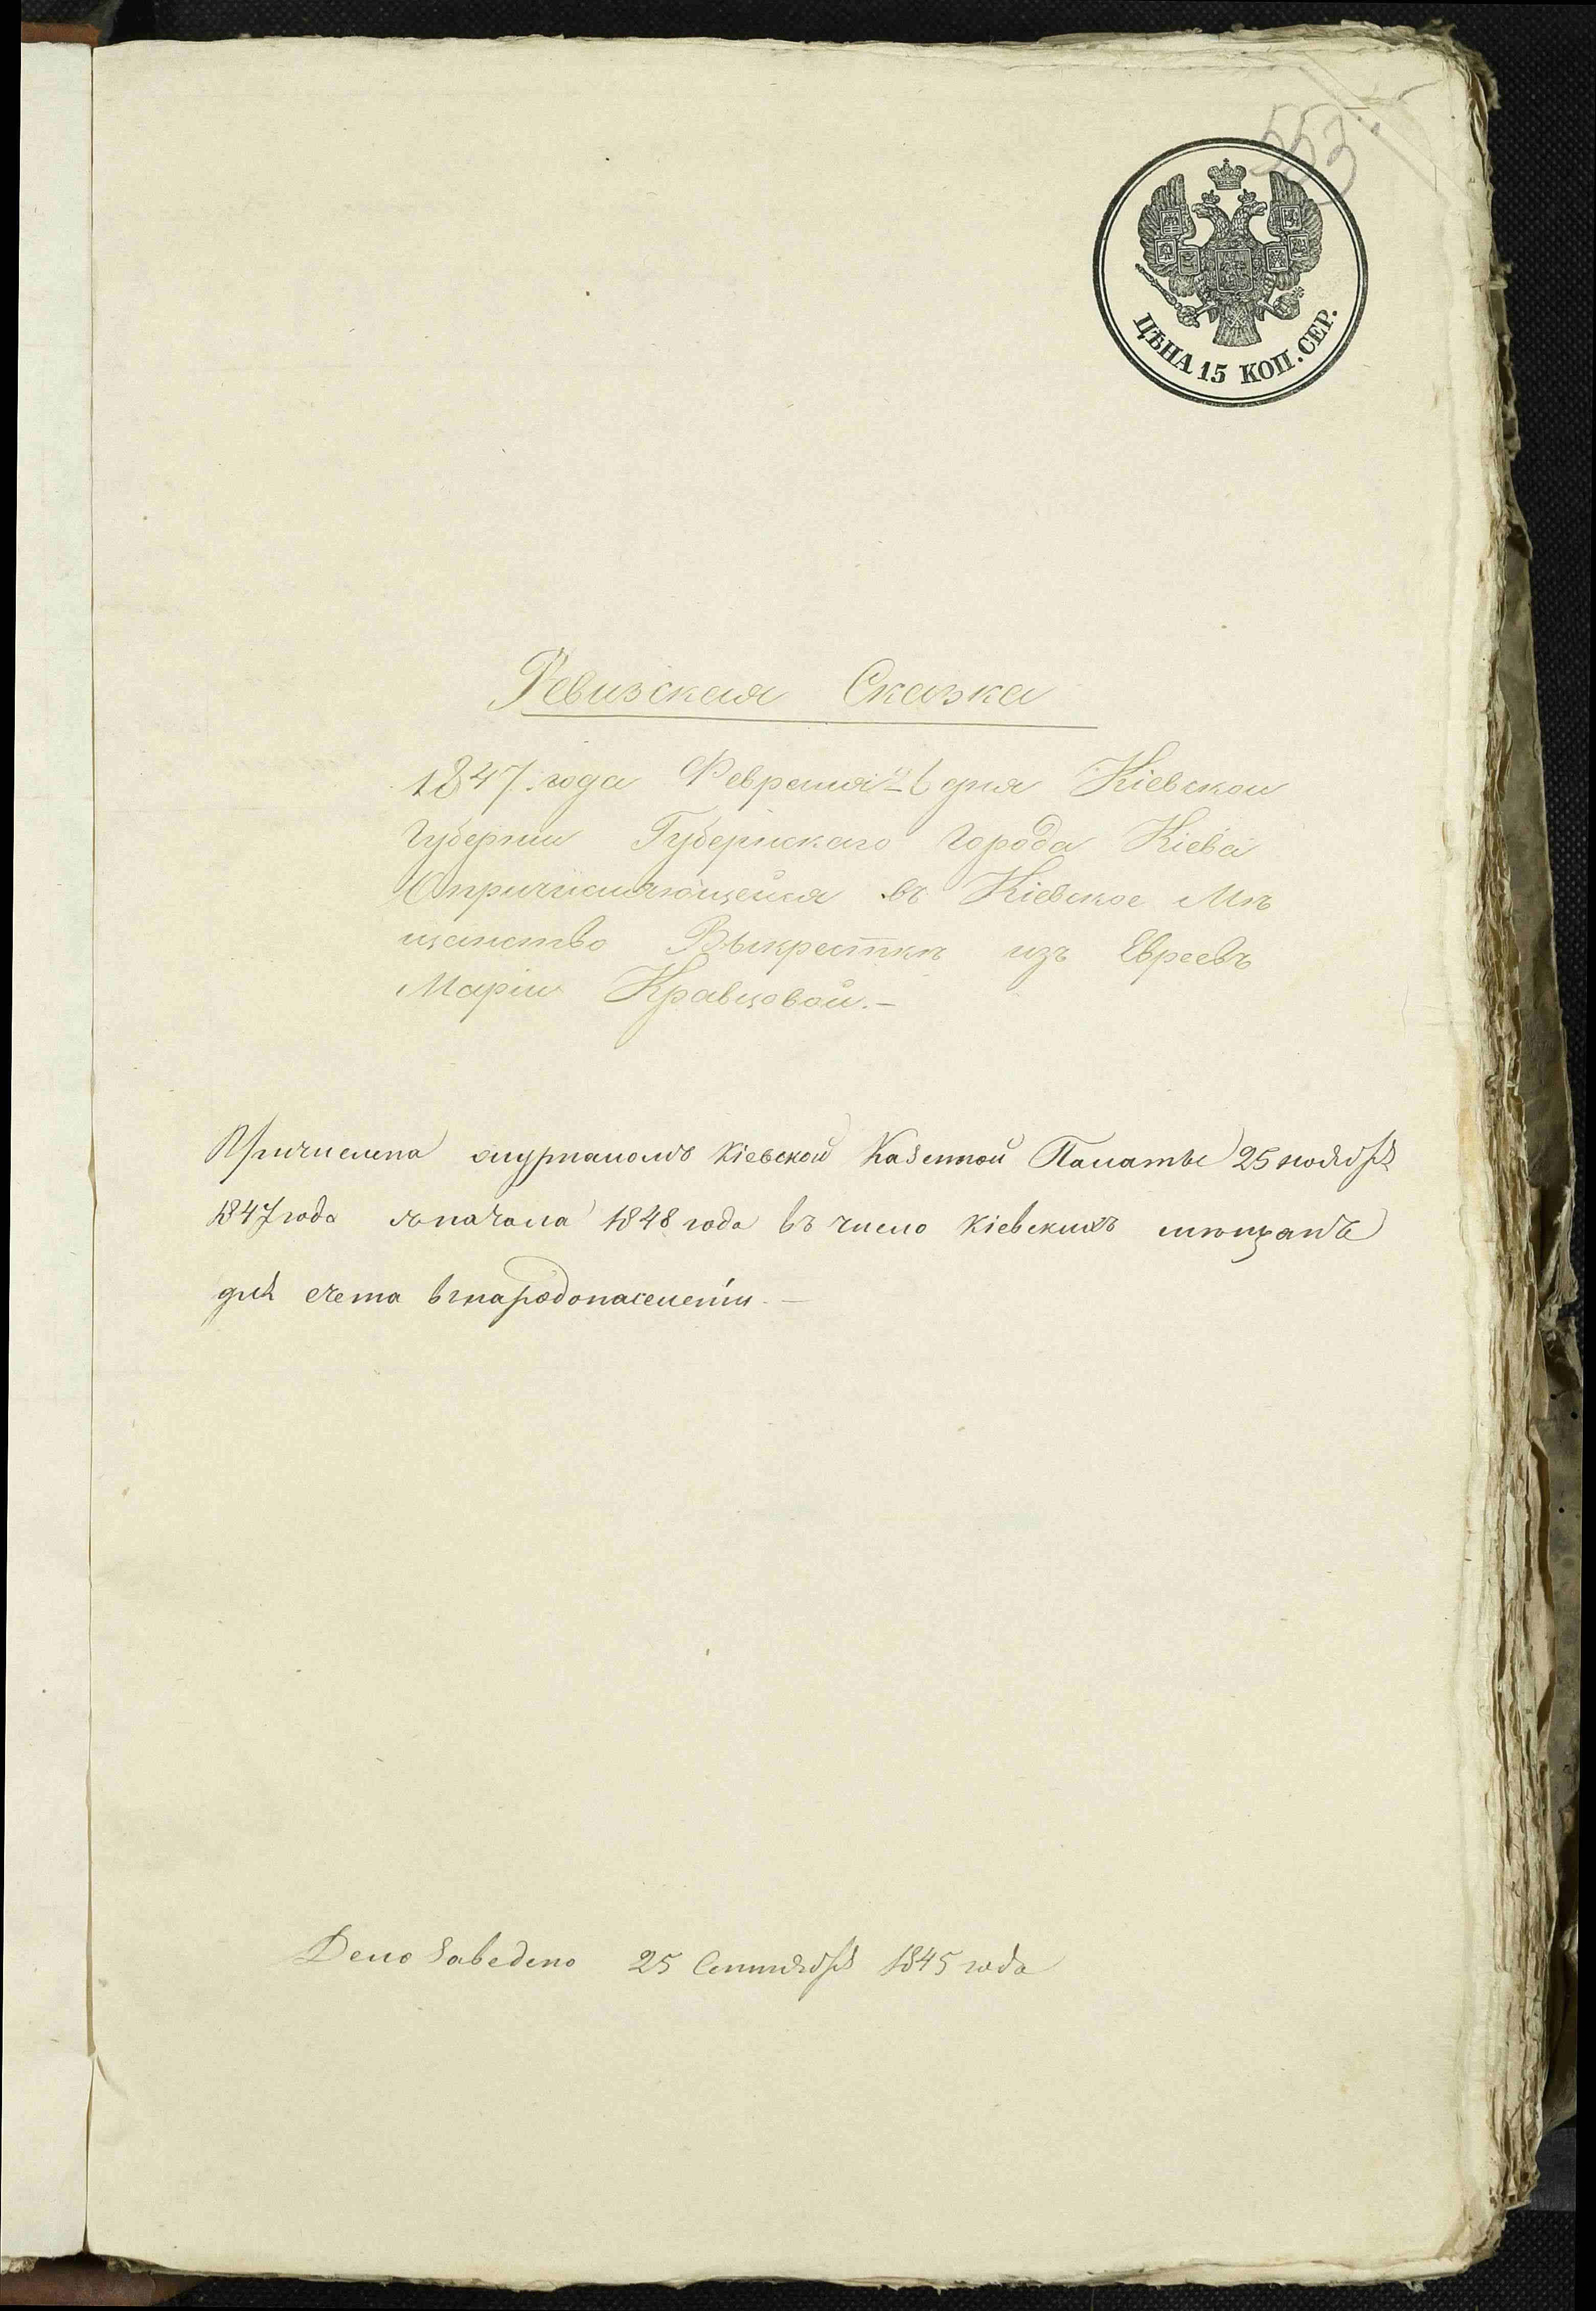 553
ЦѢНА 15 КОП. СЕР.
Ревизская Сказка
1847 года Февраля 26 дня Кіевской
Губерніи Губернскаго Города Кіева
О причисляющейся въ Кіевское Мѣ
щанство Выкресткѣ изъ Евреевъ
Маріи Кравцовой. —
Причислена журналомъ Кіевской Казенной Палаты 25 ноября
1847 года съ начала 1848 года въ число Кіевскихъ мѣщанъ
для счета въ народонаселеніи. —
Дело заведено 25 Сентября 1845 года